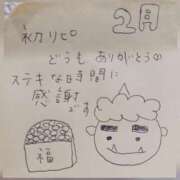 2月
初リピ
どうも ありがとう
ステキな時間に
感謝です
福